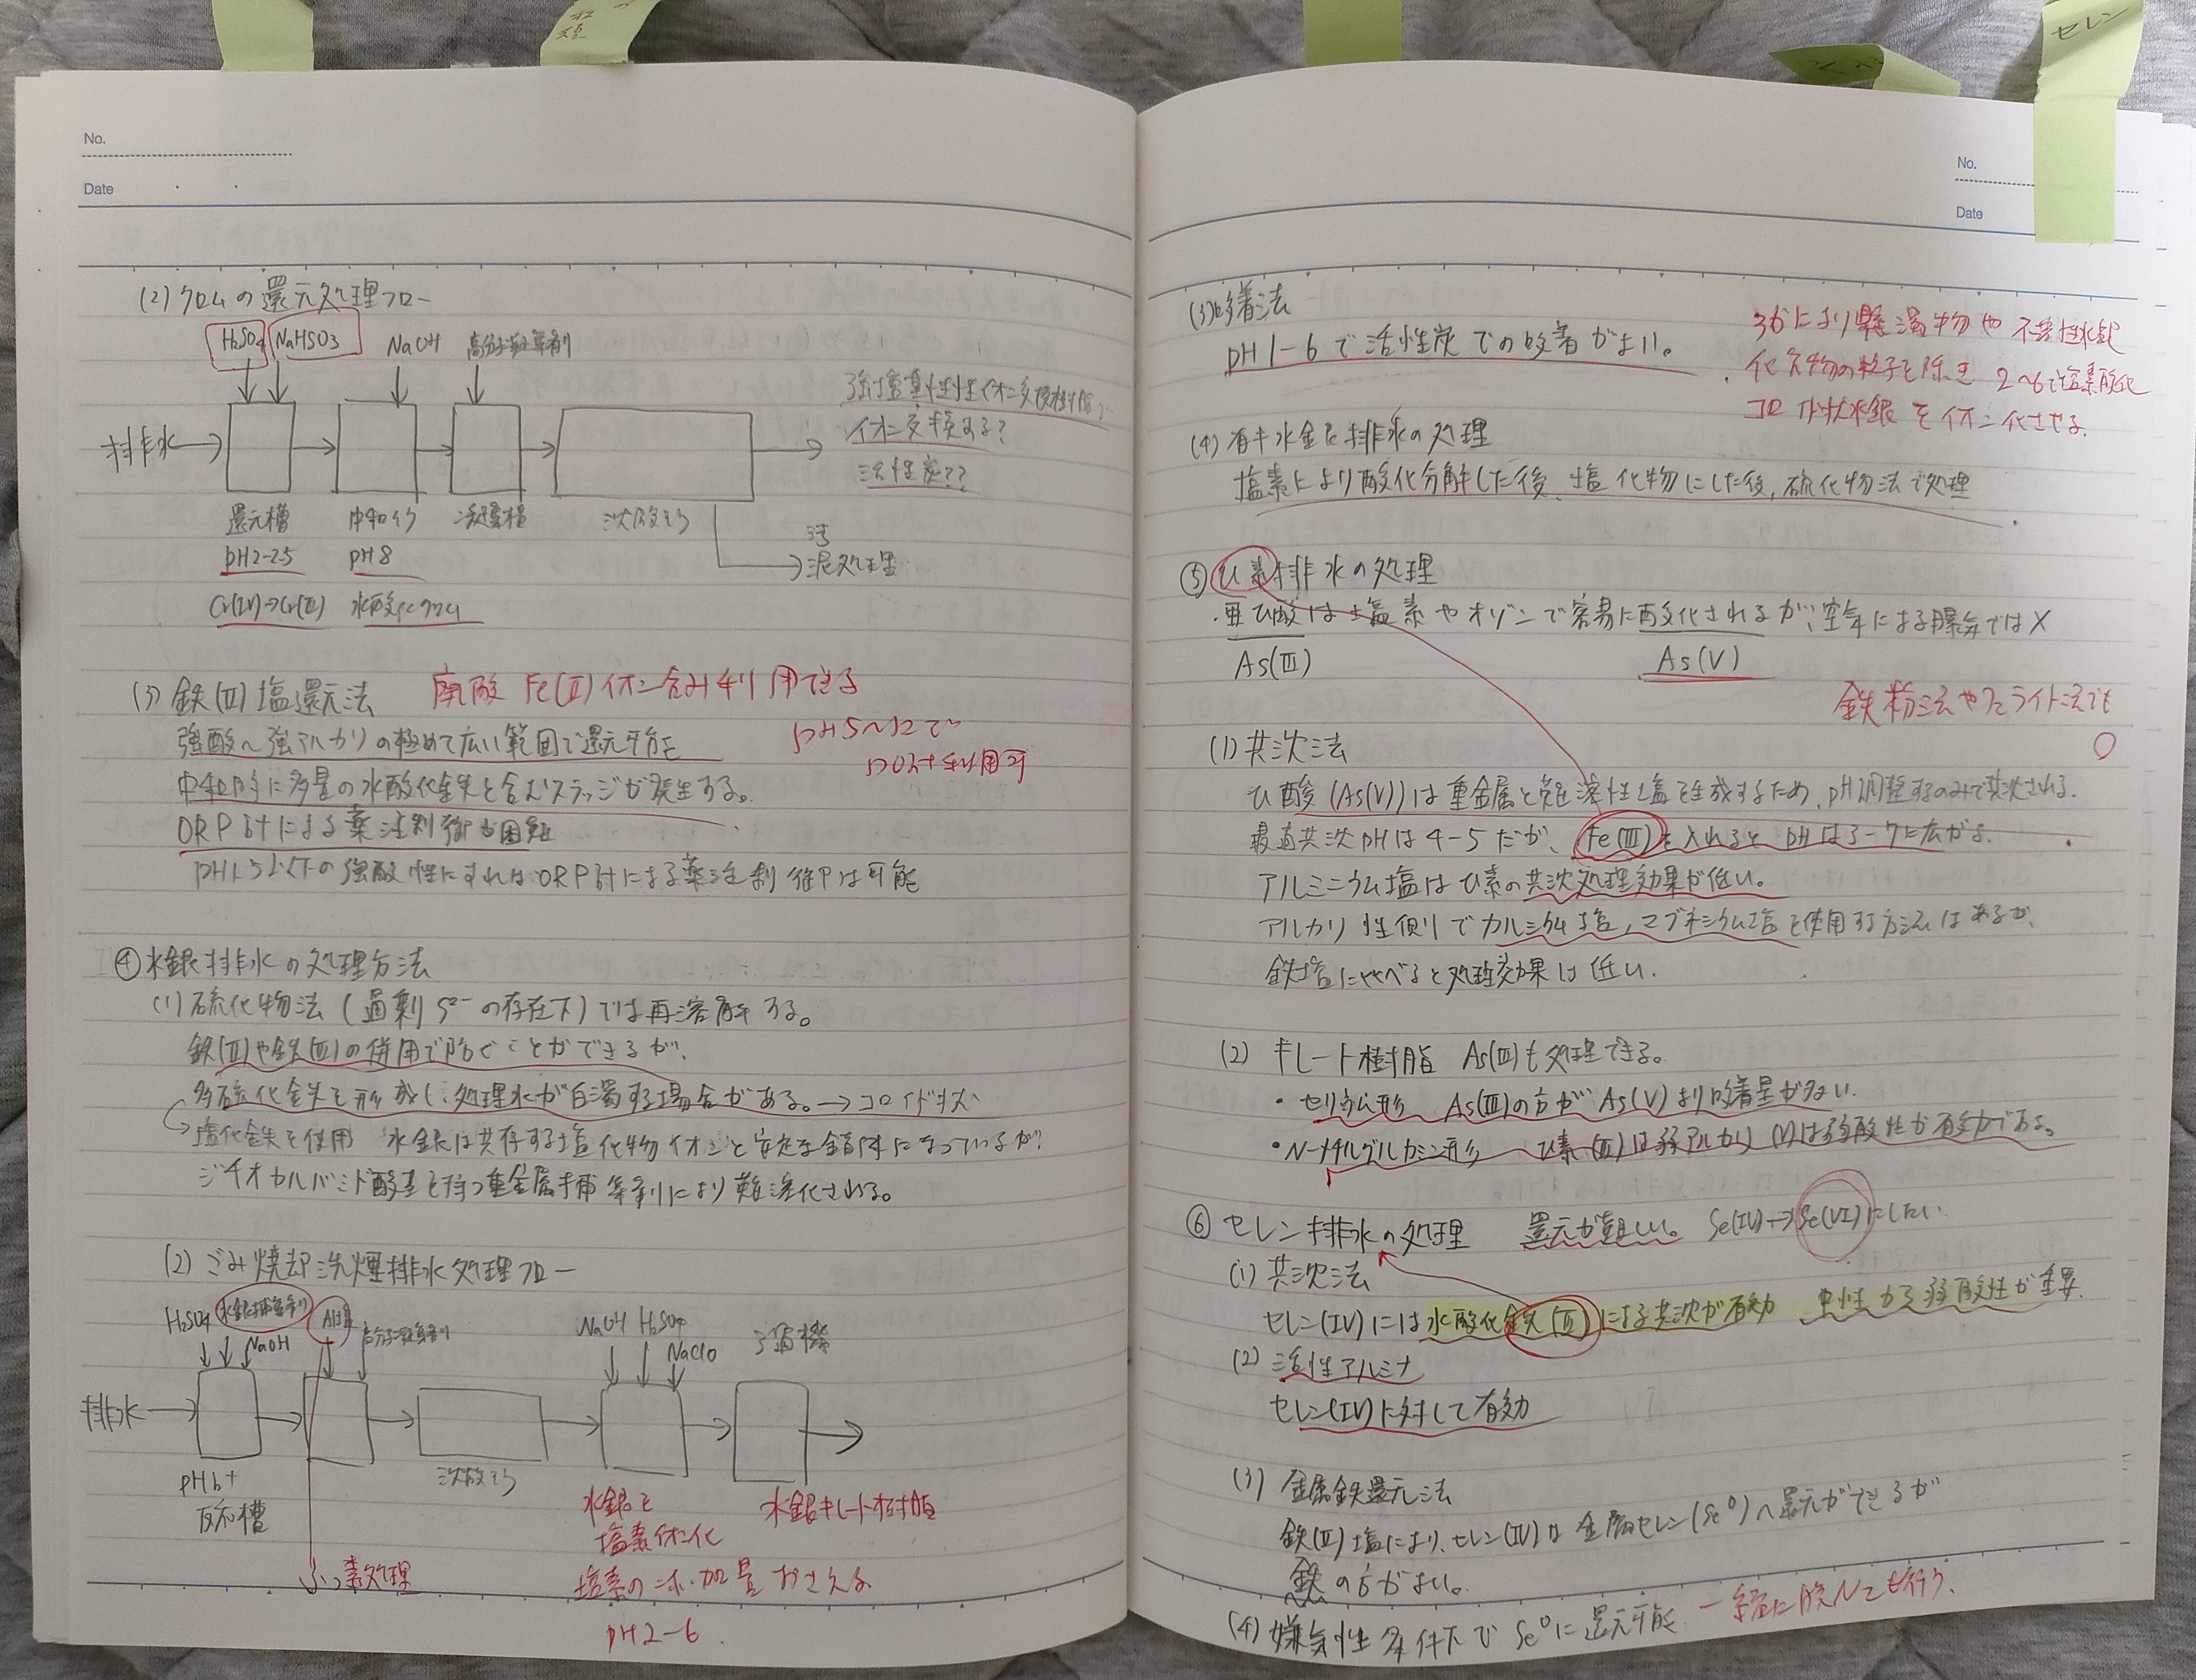 セレン
No.
Date
(2)クロムの還元処理フロー
H₂SO₄ NaHSO3 NaOH 高分子凝集剤
強塩基性イオン交換樹脂で
イオン交換する?
活性炭??
排水
還元槽 中和イウ 凝集槽 沈殿そう
pH2-2.5 pH8
汚泥処理
水酸化クロム
(3) 鉄(Ⅱ)塩還元法
廃酸 Fe(Ⅱ)イオン含み利用できる
強酸〜強アルカリの極めて広い範囲で還元可能
中和時に多量の水酸化金失を含むスラッジが発生する。
ORP計による薬注制御が困難
pH1.5以下の強酸性にすればORP計による薬注制御は可能
④水銀排水の処理方法
(1) 硫化物法 (過剰S²⁻の存在下)では再溶解する。
鉄(Ⅱ)や鉄(Ⅲ)の併用で防ぐことができるが、
多硫化金失を形成し、処理水が白濁する場合がある。→コロイド状
塩化金失を使用 水銀は共存する塩化物イオンと安定な錯体になっているが、
ジチオカルバミド酸基を持つ重金属捕集剤により難溶化される。
(2) ごみ焼却洗煙排水処理フロー
H₂SO₄ 水銀捕集剤 NaOH Al塩 高分子凝集剤
NaOH H₂SO₄ NaClO ろ過機
排水
pH6+
反応槽
沈殿そう
水銀を
塩素イオン化
水銀キレート樹脂
ふっ素処理
塩素の添加量おさえる
pH2-6
No.
Date
(3)吸着法
pH1-6で活性炭での吸着がよい。
ろ過により懸濁物や不溶性水銀
化合物の粒子を除き 2〜6で塩素酸化
コロイド状水銀をイオン化させる。
(4) 有キ水金艮排水の処理
塩素により酸化分解した後、塩化物にした後,硫化物法で処理
⑤ひ素排水の処理
・亜ひ酸は塩素やオゾンで容易に酸化されるが、空気による曝気では×
As(Ⅲ) As(Ⅴ)
鉄粉法やフェライト法でも
○
(1)共沈法
ひ酸(As(Ⅴ))は重金属と難溶性塩を生成するため、pH調整するのみで共沈される。
最適共沈pHは4-5だが、Fe(Ⅲ)を入れるとpHは3-7に広がる。
アルミニウム塩はひ素の共沈処理効果が低い。
アルカリ性側でカルシウム塩,マグネシウム塩を使用する方法はあるが、
鉄塩に比べると処理効果は低い.
(2) キレート樹脂 As(Ⅲ)も処理できる。
・セリウム形 As(Ⅲ)の方がAs(Ⅴ)より吸着量が多い.
・N-メチルグルカミン形 ひ素(Ⅲ)は弱アルカリ (Ⅴ)は弱酸性が有効である。
⑥ セレン排水の処理 還元が難しい。 Se(Ⅳ)→Se(Ⅵ)にしたい.
(1)共沈法
セレン(Ⅳ)には水酸化鉄(Ⅲ)による共沈が有効 中性から弱酸性が重要.
(2) 活性アルミナ
セレン(Ⅳ)に対して有効
(3) 金属鉄還元法
鉄(Ⅱ)塩により、セレン(Ⅳ)は金属セレン(Se⁰)へ還元ができるが
鉄の方がよい。
(4)嫌気性条件下でSe⁰に還元可能 一緒に脱Nも行う.